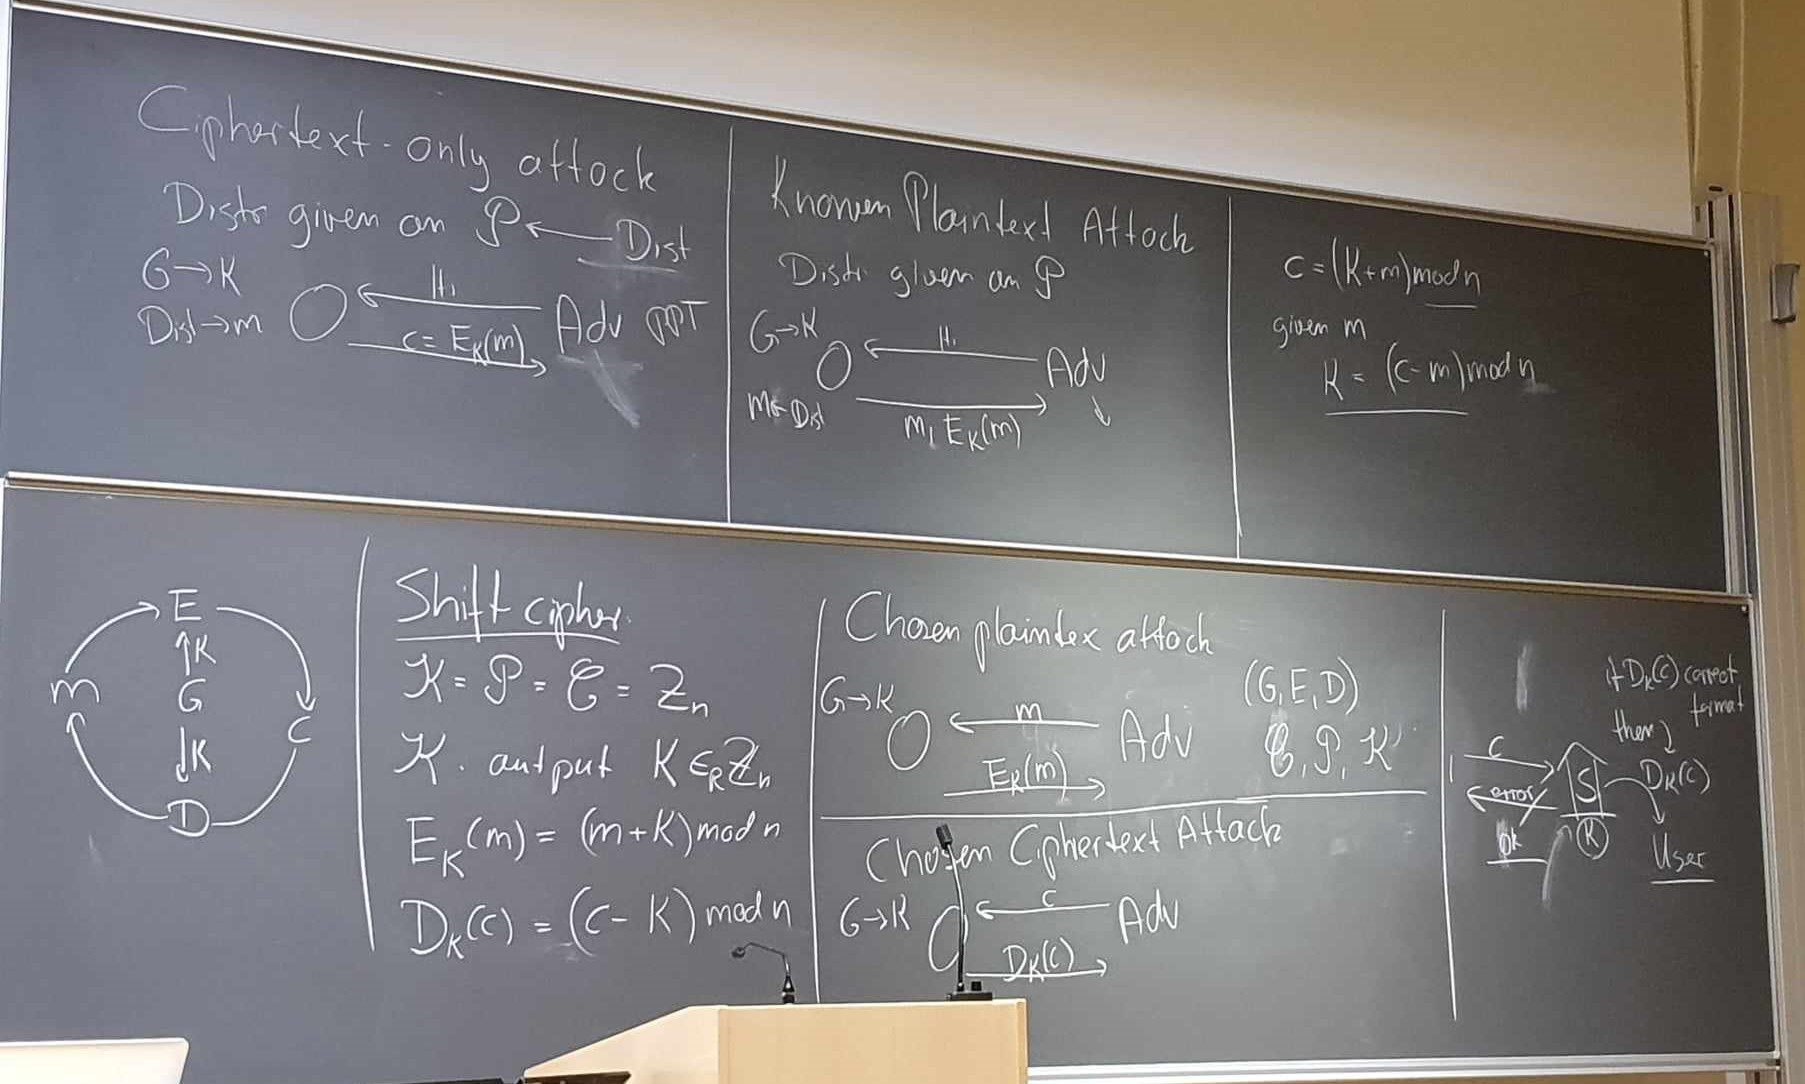 Ciphertext-only attack
Distr given on P ← Dist
G→K
Dist→m
Hi
c = E_K(m)
Adv PPT
Known Plaintext Attack
Distr given on P
G→K
m←Dist
Hi
m, E_K(m)
Adv
c = (K+m) mod n
given m
K = (c-m) mod n
E
↑K
m G c
↓K
D
Shift cipher.
K = P = C = Z_n
K. output K ∈_R Z_n
E_K(m) = (m+K) mod n
D_K(c) = (c-K) mod n
Chosen plaintex attack
G→K
m
E_K(m)
Adv
(G, E, D)
C, P, K
Chosen Ciphertext Attack
G→K
c
D_K(c)
Adv
if D_K(c) correct
format
then
c
S
error
D_K(c)
OK
K
User